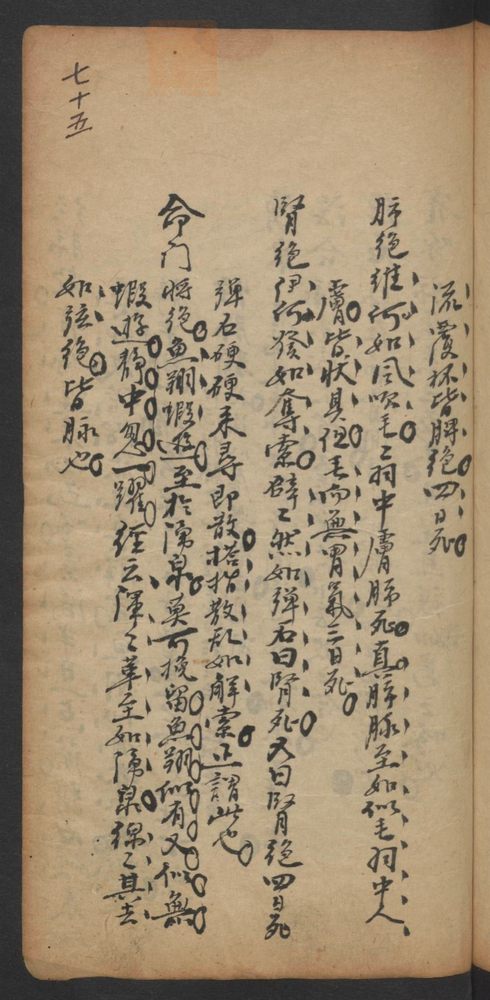 流覆杯皆脾絶四日死
肺絶維何如风吹毛毛羽中膚肺死真肺脉至如似毛羽中人
膚皆状具但毛而無胃氣三日死
腎絶伊何發如奪索辟辟然如弹石曰腎死又曰腎絶四日死
弹石硬硬来尋即散搭指散乱如解索正謂此也
命门將絶魚翔蝦遊至於湧泉莫可挽留魚翔似有又似無
蝦遊静中忽一躍經云渾渾革至如湧泉綿綿其去
如弦絶皆脉也
七十五